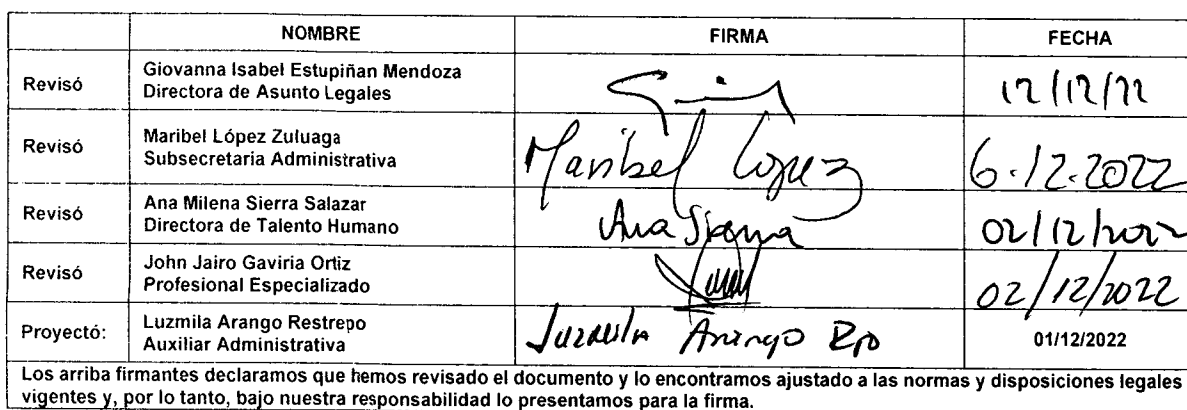 NOMBRE FIRMA FECHA
Revisó Giovanna Isabel Estupiñan Mendoza
Directora de Asunto Legales 12/12/22
Revisó Maribel López Zuluaga
Subsecretaria Administrativa Maribel Lopez 6.12.2022
Revisó Ana Milena Sierra Salazar
Directora de Talento Humano Ana Sierra 02/12/2022
Revisó John Jairo Gaviria Ortiz
Profesional Especializado 02/12/2022
Proyectó: Luzmila Arango Restrepo
Auxiliar Administrativa Luzmila Arango Rpo 01/12/2022
Los arriba firmantes declaramos que hemos revisado el documento y lo encontramos ajustado a las normas y disposiciones legales
vigentes y, por lo tanto, bajo nuestra responsabilidad lo presentamos para la firma.